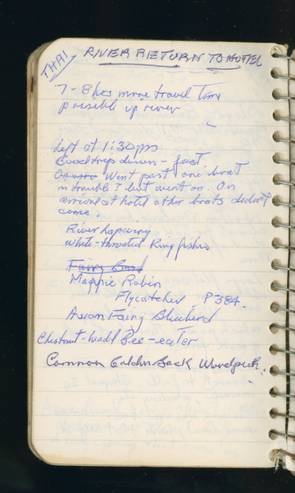 THAI
RIVER RETURN TO HOTEL
7-8 hrs more travel time
possible up river
left at 1:30 pm
Good trip down - fast.
Went past one boat
in trouble & but went on. On
arrival at hotel other boats didn't
come.
River Lapwing
White-throated Kingfisher
Fairy
Magpie Robin
Flycatcher P384.
Asian Fairy Bluebird
Chestnut-headed Bee-eater
Common Golden Back Woodpeck.